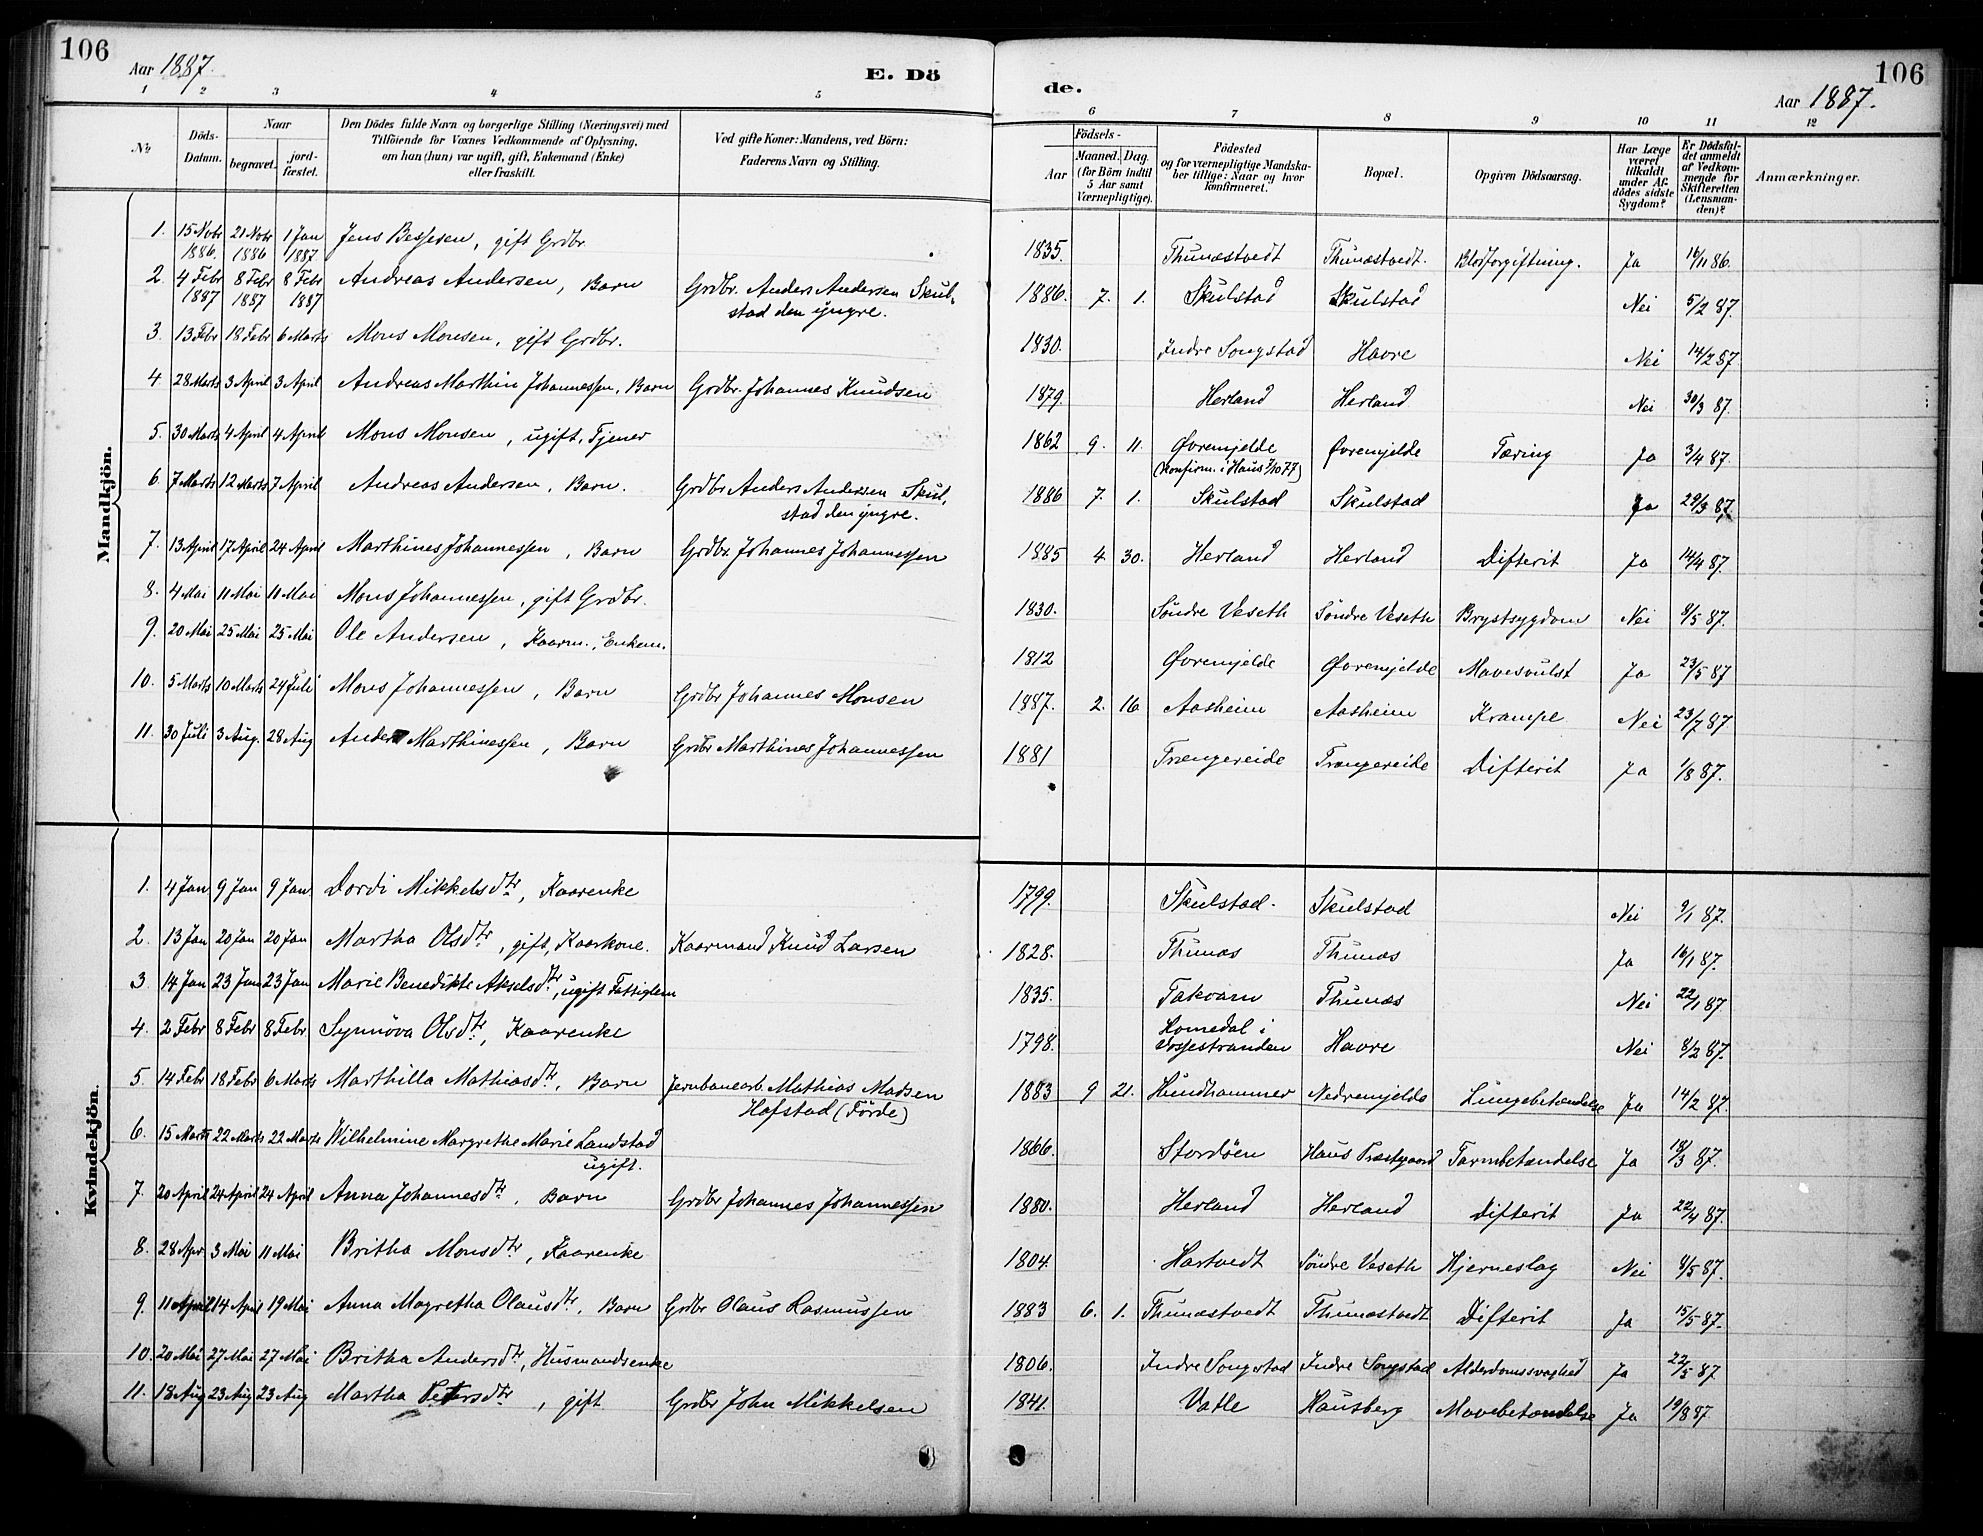 106
Aar 1887.
E. Dö
de.
Aar 1887.
106
1 2 3 4 5 6 7 8 9 10 11 12
No
Döds-Datum.
Naar
begravet.
jordfæstet.
Den Dödes fulde Navn og borgerlige Stilling (Næringsvei) med
Tilföiende for Voxnes Vedkommende af Oplysning,
om han (hun) var ugift, gift, Enkemand (Enke)
eller fraskilt.
Ved gifte Koner: Mandens, ved Börn:
Faderens Navn og Stilling.
Födsels-
Aar
Maaned. Dag.
(for Börn indtil
5 Aar samt
Værnepligtige).
Födested
og for værnepligtige Mandska-
ber tillige: Naar og hvor
konfirmeret.
Bopæl.
Opgiven Dödsaarsag.
Har Læge
været
tilkaldt
under Af-
dödes sidste
Sygdom?
Er Dödsfal-
det anmeldt
af Vedkom-
mende for
Skifteretten
(Lensman-
den)?
Anmærkninger.
Mandkjön.
1. 15 Novbr 1886. 21 Novbr 1886 1 Jan 1887. Jens Bessesen, gift Grdbr. 1835. Thunæstvedt Thunæstvedt. Blodforgiftning. Ja 16/11 86.
2. 4 Febr 1887 8 Febr 1887 8 Febr 1887 Andreas Andersen, Barn Grdbr. Anders Andersen Skul-
stad den yngre. 1886. 7. 1. Skulstad Skulstad Nei 5/2 87.
3. 13 Febr 18 Febr 6 Marts Mons Monsen, gift Grdbr. 1830. Indre Songstad Havre Nei 14/2 87.
4 28 Marts 3 April 3 April Andreas Marthin Johannessen, Barn Grdbr. Johannes Knudsen 1879. Herland Herland Nei 30/3 87.
5. 30 Marts 4 April 4 April Mons Monsen, ugift, Tjener 1862 9. 11. Øvremjelde
(Konfirm. i Haus 7/10 77) Øvremjelde Tæring Ja 3/4 87.
6. 7 Marts 12 Marts 7 April Andreas Andersen, Barn. Grdbr Anders Andersen Skul-
stad den yngre. 1886 7. 1. Skulstad Skulstad Ja 29/3 87.
7. 13 April 17 April 24 April Marthines Johannessen, Barn Grdbr Johannes Johannessen 1885 4 30. Herland Herland Difterit Ja 14/4 87.
8. 4 Mai 11 Mai 11 Mai Mons Johannessen, gift Grdbr. 1830. Söndre Veseth Söndre Veseth Brystsygdom Nei 8/5 87.
9. 20 Mai 25 Mai 25 Mai Ole Andersen, Kaarm., Enkem. 1812 Øvremjelde Øvremjelde Mavesvulst Ja 23/5 87
10. 5 Marts 10 Marts 24 Juli Mons Johannessen, Barn Grdbr Johannes Monsen 1887. 2. 16 Aasheim Aasheim Krampe Nei 23/7 87
11. 30 Juli 3 Aug. 28 Aug Anders Marthinessen, Barn Grdbr Marthines Johannessen 1881 Trængereide Trængereide Difterit Ja 1/8 87.
Kvindekjön.
1. 4 Jan 9 Jan 9 Jan Dordi Mikkelsdtr, Kaarenke 1799. Skulstad. Skulstad Nei 9/1 87.
2. 13 Jan 20 Jan 20 Jan Martha Olsdtr, gift, Kaarkone. Kaarmand Knud Larsen 1828. Thunæs Thunæs Ja 16/1 87.
3 14 Jan 23 Jan 23 Jan Marie Benedikte Akselsdtr, ugift Fattiglem 1835. Takvam Thunæs Nei 22/1 87.
4. 2 Febr 8 Febr 8 Febr. Synnöva Olsdtr, Kaarenke 1798. Homedal i
Vossestranden Havre Nei 8/2 87.
5. 14 Febr 18 Febr 6 Marts Marthilla Mathiasdtr, Barn Jernbanearb. Mathias Madsen
Hafstad (Förde) 1883 9 21. Hundhammer Nedremjelde Lungebetændelse Ja 14/2 87.
6. 15 Marts 22 Marts 22 Marts Wilhelmine Margrethe Marie Landstad
ugift. 1866. Stordöen Haus Præstgaard Tarmbetændelse Ja 18/3 87.
7. 20 April 24 April 24 April Anna Johannesdtr, Barn Grdbr Johannes Johannessen 1880. Herland Herland Difterit Ja 22/4 87.
8. 28 Apr 3 Mai 11 Mai Britha Monsdtr, Kaarenke 1804. Hartvedt Söndre Veseth Hjerneslag Nei 8/5 87.
9. 11 April 14 April 19 Mai Anna Magretha Olausdtr, Barn Grdbr Olaus Rasmussen 1883 6. 1. Thunæstvedt Thunæstvedt Difterit Ja 15/5 87.
10. 20 Mai 27 Mai 27 Mai Britha Andersdtr, Husmandsenke 1806. Indre Songstad Indre Songstad Alderdomssvaghed Ja 22/5 87
11. 18 Aug 23 Aug 23 Aug Martha Petersdtr, gift Grdbr John Mikkelsen 1841. Vatle Hausberg Mavebetændelse Ja 19/8 87.